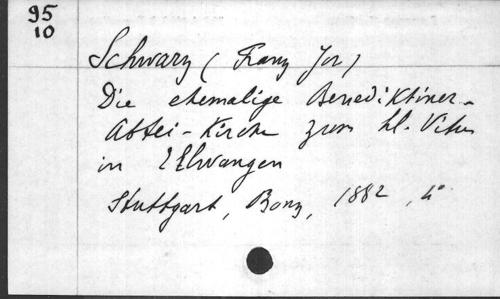 95
10
Schwarz (Franz Jos)
Die ehemalige Benediktiner-
Abtei-Kirche zum hl. Vitus
in Ellwangen
Stuttgart, Bonz, 1882, 4°